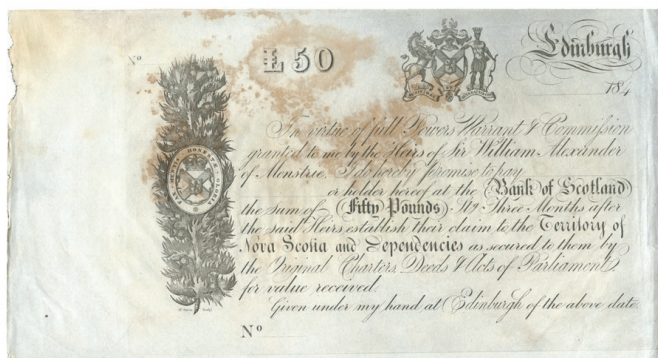 No
£50
Edinburgh
184
In virtue of full Powers Warrant & Commission
granted to me by the Heirs of Sir William Alexander
of Menstrie I do hereby promise to pay
or holder hereof at the Bank of Scotland
the sum of Fifty Pounds Stg Three Months after
the said Heirs establish their claim to the Territory of
Nova Scotia and Dependencies as secured to them by
the Original Charters, Deeds & Acts of Parliament
for value received.
Given under my hand at Edinburgh of the above date
No